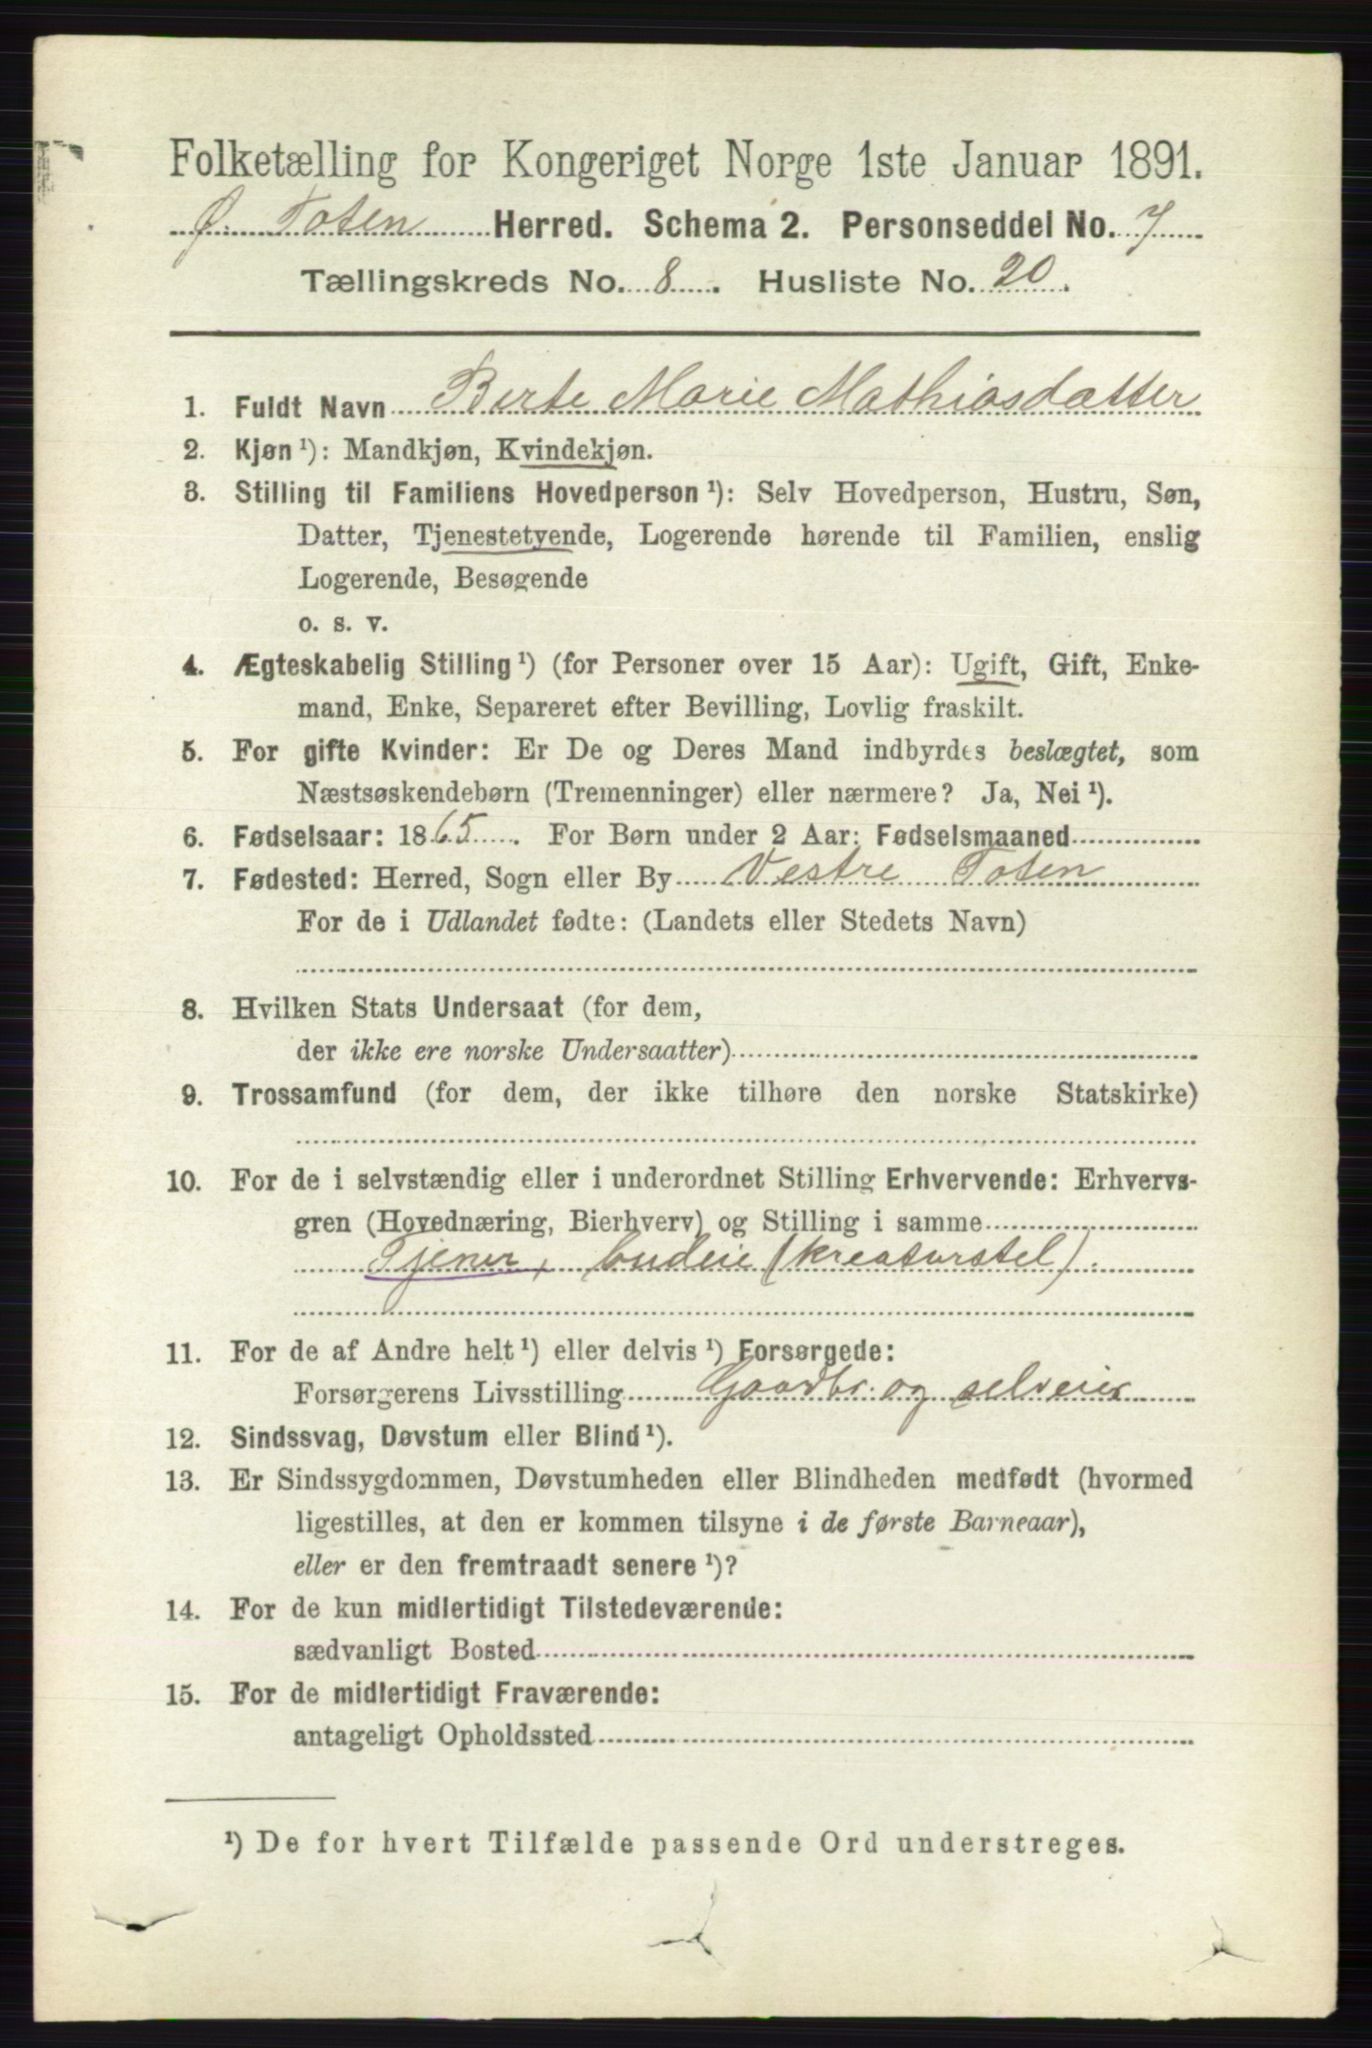 Folketælling for Kongeriget Norge 1ste Januar 1891.
Ø. Toten Herred. Schema 2. Personseddel No. 7
Tællingskreds No. 8. Husliste No. 20.
1. Fuldt Navn Berte Marie Mathiasdatter
2. Kjøn ¹): Mandkjøn, Kvindekjøn.
3. Stilling til Familiens Hovedperson ¹): Selv Hovedperson, Hustru, Søn,
Datter, Tjenestetyende, Logerende hørende til Familien, enslig
Logerende, Besøgende
o. s. v.
4. Ægteskabelig Stilling ¹) (for Personer over 15 Aar): Ugift, Gift, Enke-
mand, Enke, Separeret efter Bevilling, Lovlig fraskilt.
5. For gifte Kvinder: Er De og Deres Mand indbyrdes beslægtet, som
Næstsøskendebørn (Tremenninger) eller nærmere? Ja, Nei ¹).
6. Fødselsaar: 1865. For Børn under 2 Aar: Fødselsmaaned
7. Fødested: Herred, Sogn eller By Vestre Toten
For de i Udlandet fødte: (Landets eller Stedets Navn)
8. Hvilken Stats Undersaat (for dem,
der ikke ere norske Undersaatter)
9. Trossamfund (for dem, der ikke tilhøre den norske Statskirke)
10. For de i selvstændig eller i underordnet Stilling Erhvervende: Erhvervs-
gren (Hovednæring, Bierhverv) og Stilling i samme
Tjener, budeie (kreaturstel).
11. For de af Andre helt ¹) eller delvis ¹) Forsørgede:
Forsørgerens Livsstilling Gaardbr. og selveier
12. Sindssvag, Døvstum eller Blind ¹).
13. Er Sindssygdommen, Døvstumheden eller Blindheden medfødt (hvormed
ligestilles, at den er kommen tilsyne i de første Barneaar),
eller er den fremtraadt senere ¹)?
14. For de kun midlertidigt Tilstedeværende:
sædvanligt Bosted
15. For de midlertidigt Fraværende:
antageligt Opholdssted
¹) De for hvert Tilfælde passende Ord understreges.